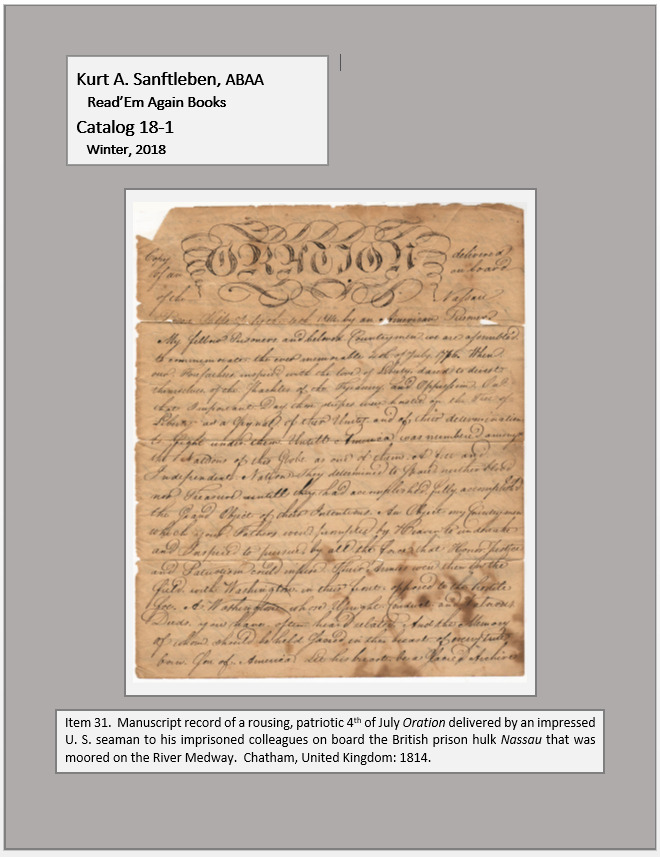 Kurt A. Sanftleben, ABAA
Read'Em Again Books
Catalog 18-1
Winter, 2018
Copy ORATION delivered
of an on board
of the Nassau
by an American Prisoner
My fellow Prisoners and beloved Countrymen we are assembled
to commemorate the ever memorable 4th of July, 1776. When
our Forfathers inspired with the love of Liberty, dared to divest
themselves of the Shackles of the Tyranny and Oppression
that Important Day their stripes were hoisted on the Tree of
Liberty as a Signal of their Unity and of their determination
to fight under them Untill America was numbered among
the Nations of the Globe as one of them. A free and
Independent Nation they determined to Spare neither blood
nor Treasure untill they had accomplished fully accomplished
the Grand Object of their Intentions. An Object my Countrymen
which your Fathers were by Heaven to undertake
and Inspired to pursue by all the force that Honor Justice
and Patriotism could inspire. Their Armies were then in the
field with Washington in their front opposed to the hostile
foe. A Washington whose Upright Conduct and Valorous
Deeds you have often heard related And the Memory
of whom should be held Sacred in the breast of every true
born Son of America let his breast be a Sacred Archive
Item 31. Manuscript record of a rousing, patriotic 4th of July Oration delivered by an impressed
U. S. seaman to his imprisoned colleagues on board the British prison hulk Nassau that was
moored on the River Medway. Chatham, United Kingdom: 1814.